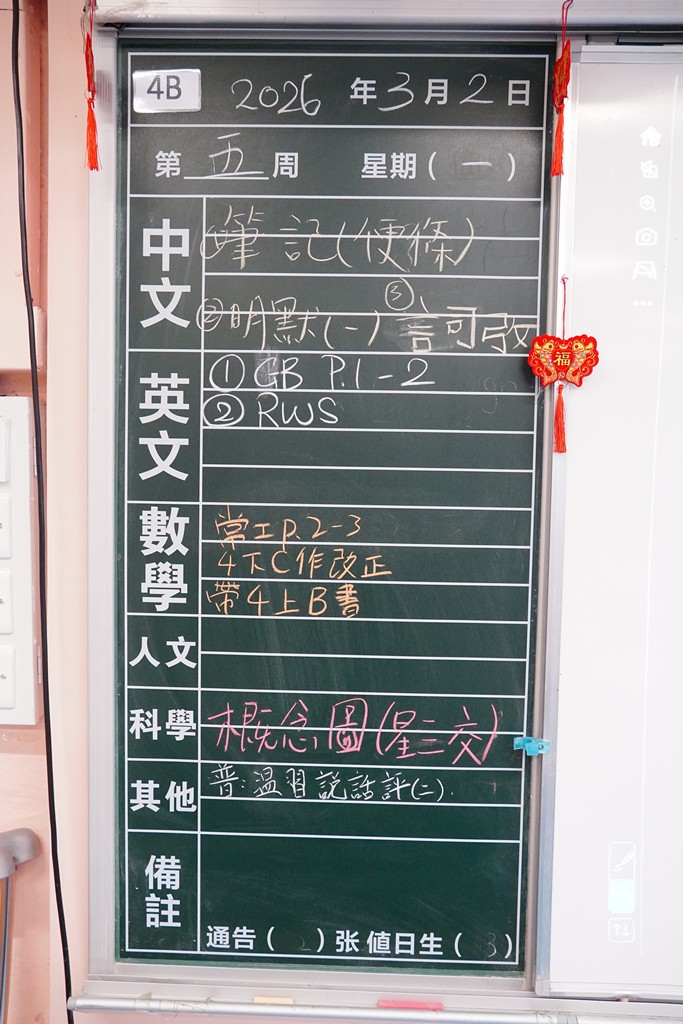 4B 2026 年 3 月 2 日
第 五 周 星期 ( 一 )
中文
①筆記(便條)
②明默(一) ③許可改
英文
① GB P.1-2
② RWS
數學
常工p.2-3
4下C作改正
帶4上B書
人文
科學
概念圖(星三交)
其他
普:溫習說話評(二).
備註
通告 ( ) 张 值日生 ( 3 )
福